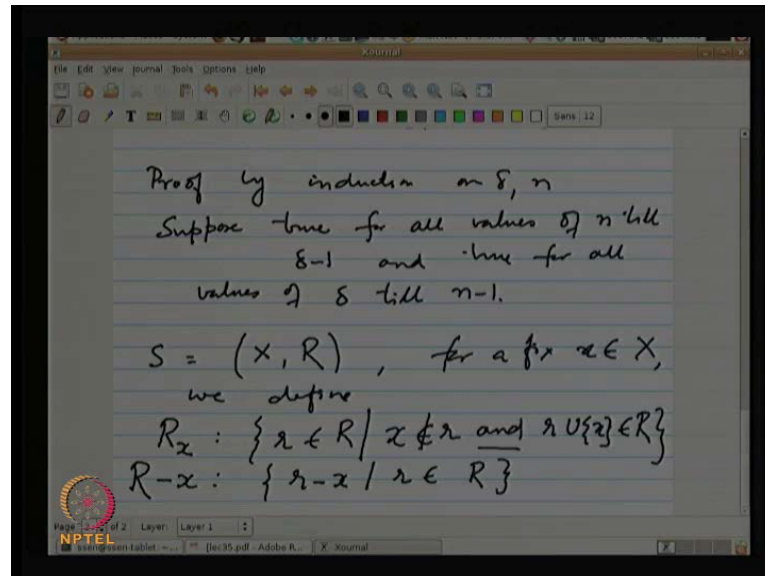 Xournal
File Edit View Journal Tools Options Help
Sans 12
Proof by induction on δ, n
Suppose true for all values of n till
δ-1 and true for all
values of δ till n-1.
S = (X, R) , for a fix x ∈ X,
we define
R_x : {r ∈ R | x ∉ r and r ∪ {x} ∈ R}
R-x : {r-x | r ∈ R}
Page of 2 Layer: Layer 1
NPTEL
ssen@ssen-tablet: ~... [lec35.pdf - Adobe R... X Xournal